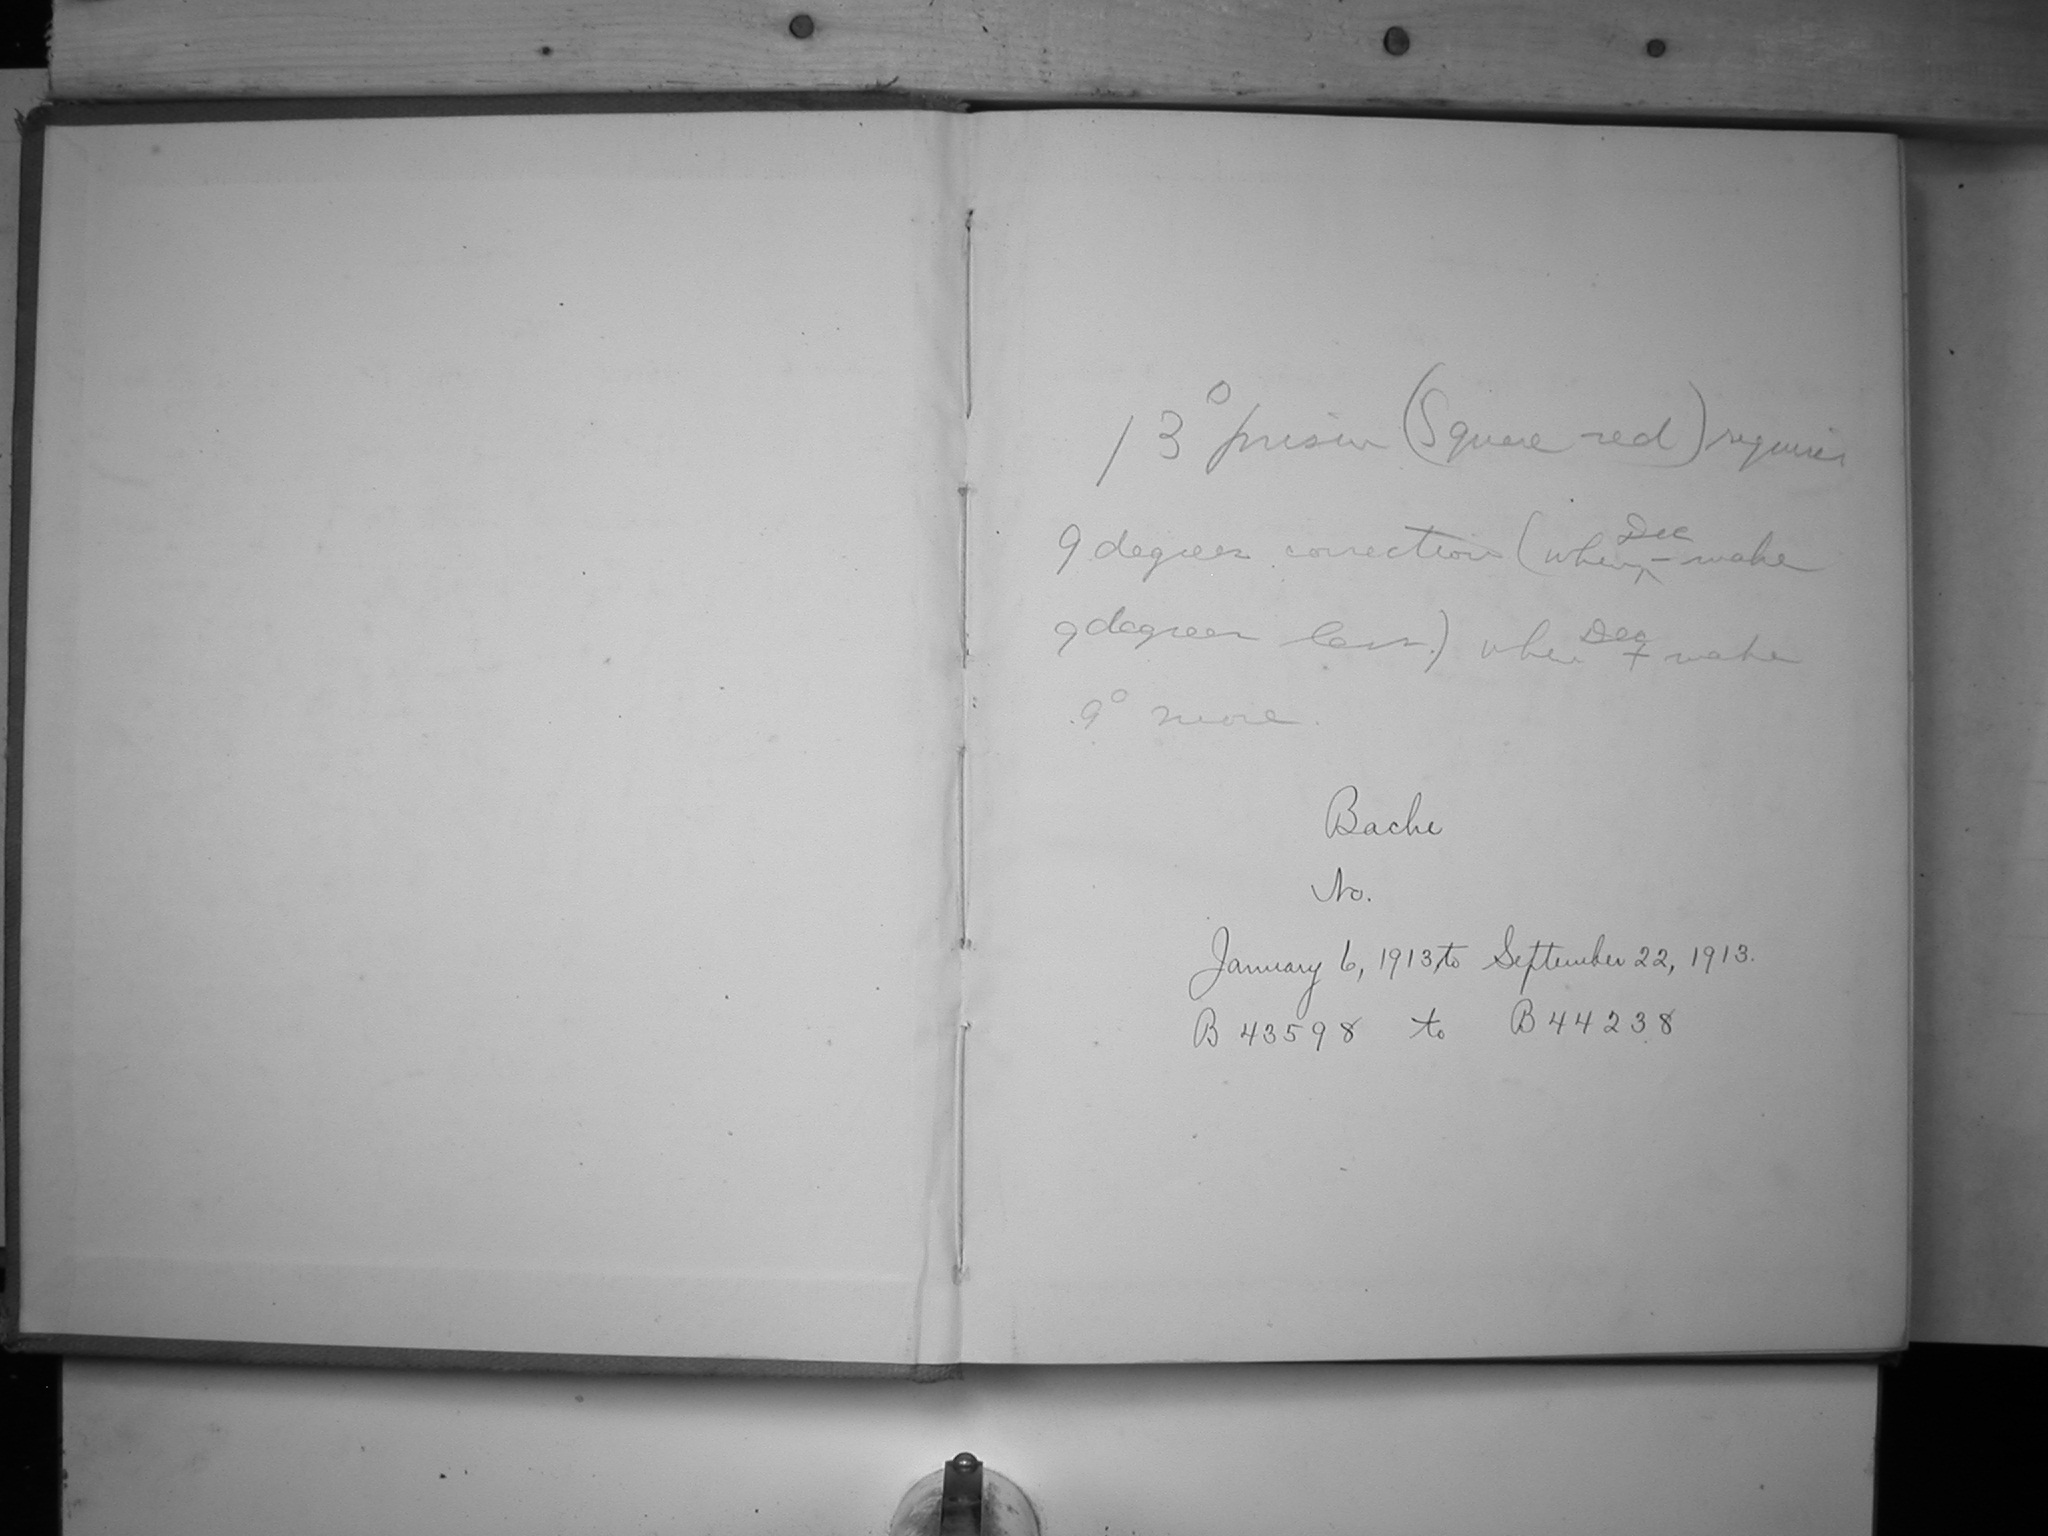 13° prism (Square red) requires
9 degrees correction (when Dec - make
9 degrees less.) when Dec + make
9° more.
Bache
No.
January 6, 1913, to September 22, 1913.
B 43598 to B 44238